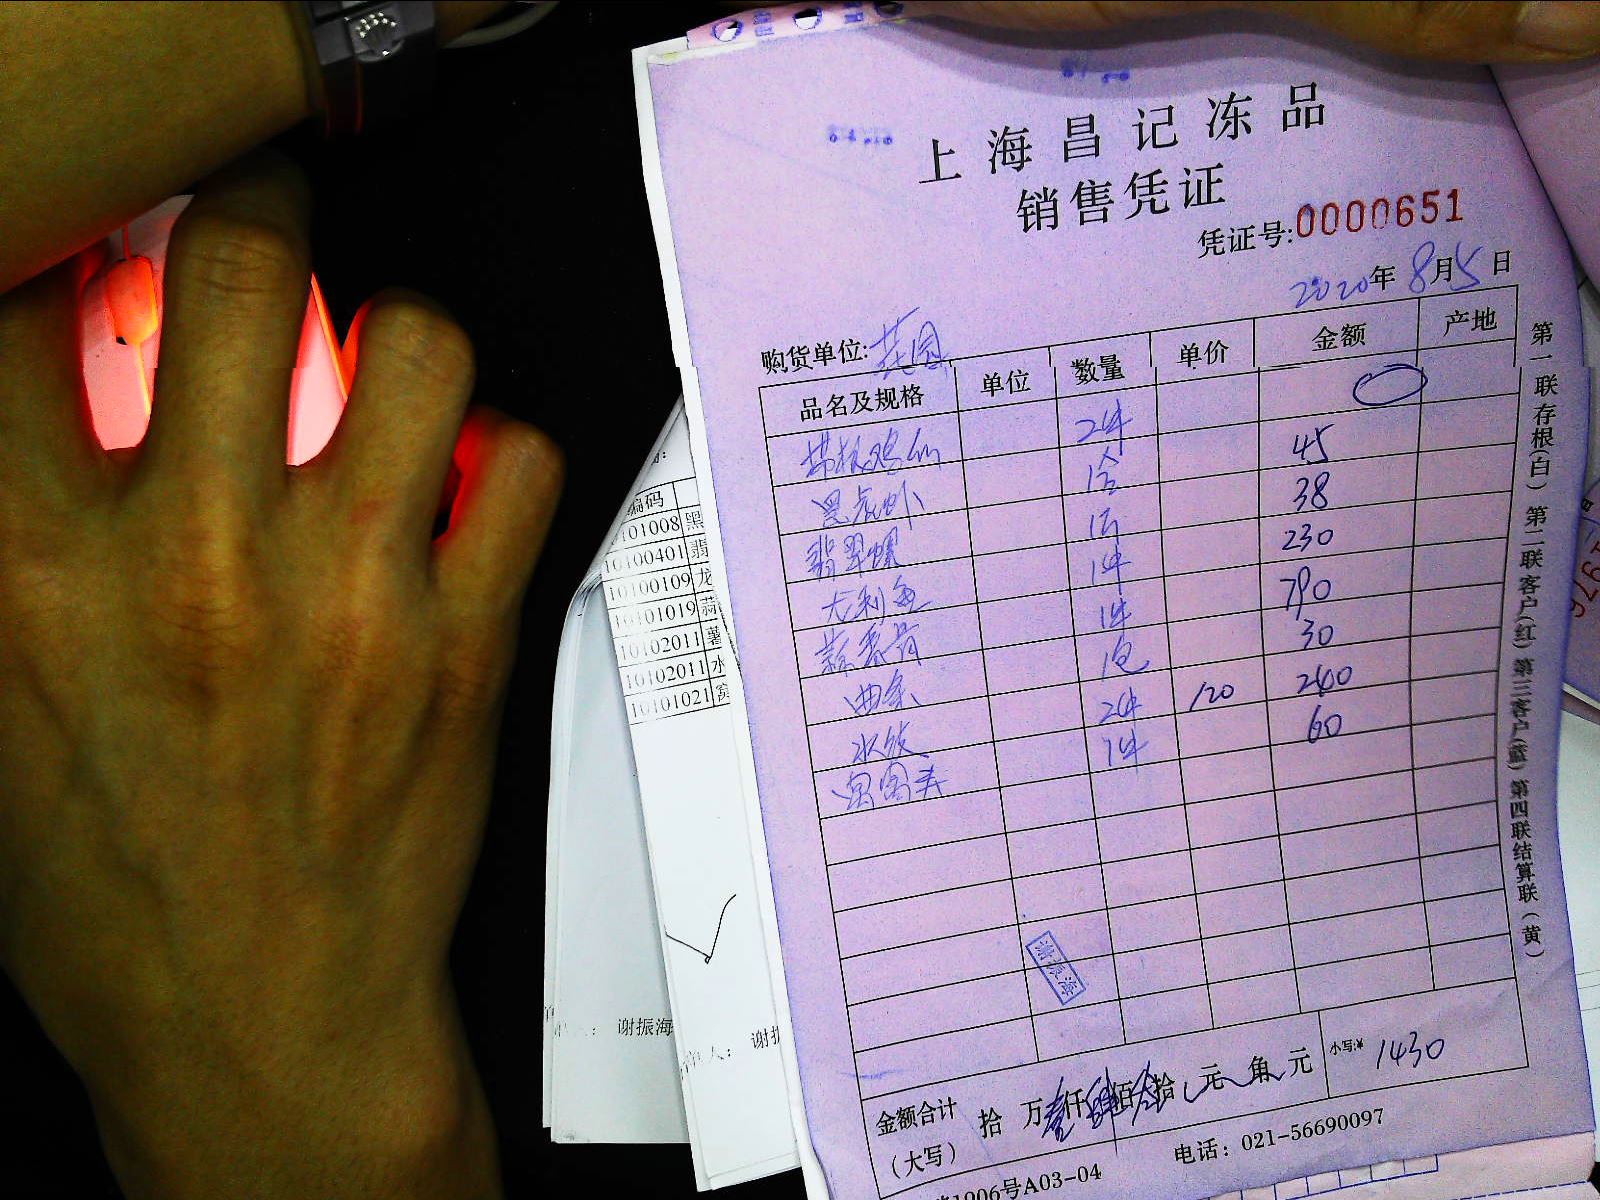 上海昌记冻品
销售凭证
凭证号:0000651
2020年8月5日
购货单位:花园
品名及规格 单位 数量 单价 金额 产地
2件
黑虎虾 1合 45
翡翠螺 1斤 38
1件 230
蒜香骨 1件 790
1包 30
水饺 2件 120 240
1件 60
谢振海
金额合计 拾 万 仟 佰 拾 元 角 元 小写:¥ 1430
(大写)
1906号A03-04 电话: 021-56690097
第一联存根(白)第二联客户(红)第三客户(蓝)第四联结算联(黄)
编码
101008 黑
10100401 翡
10100109 龙
10101019 蒜
10102011 薯
10102011 水
10101021
谢振海
人: 谢振